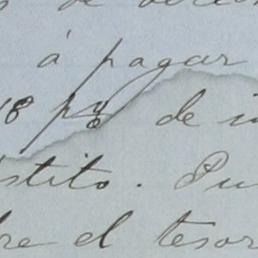 á pagar
18 p% de in
stito. Pu
re el tesor